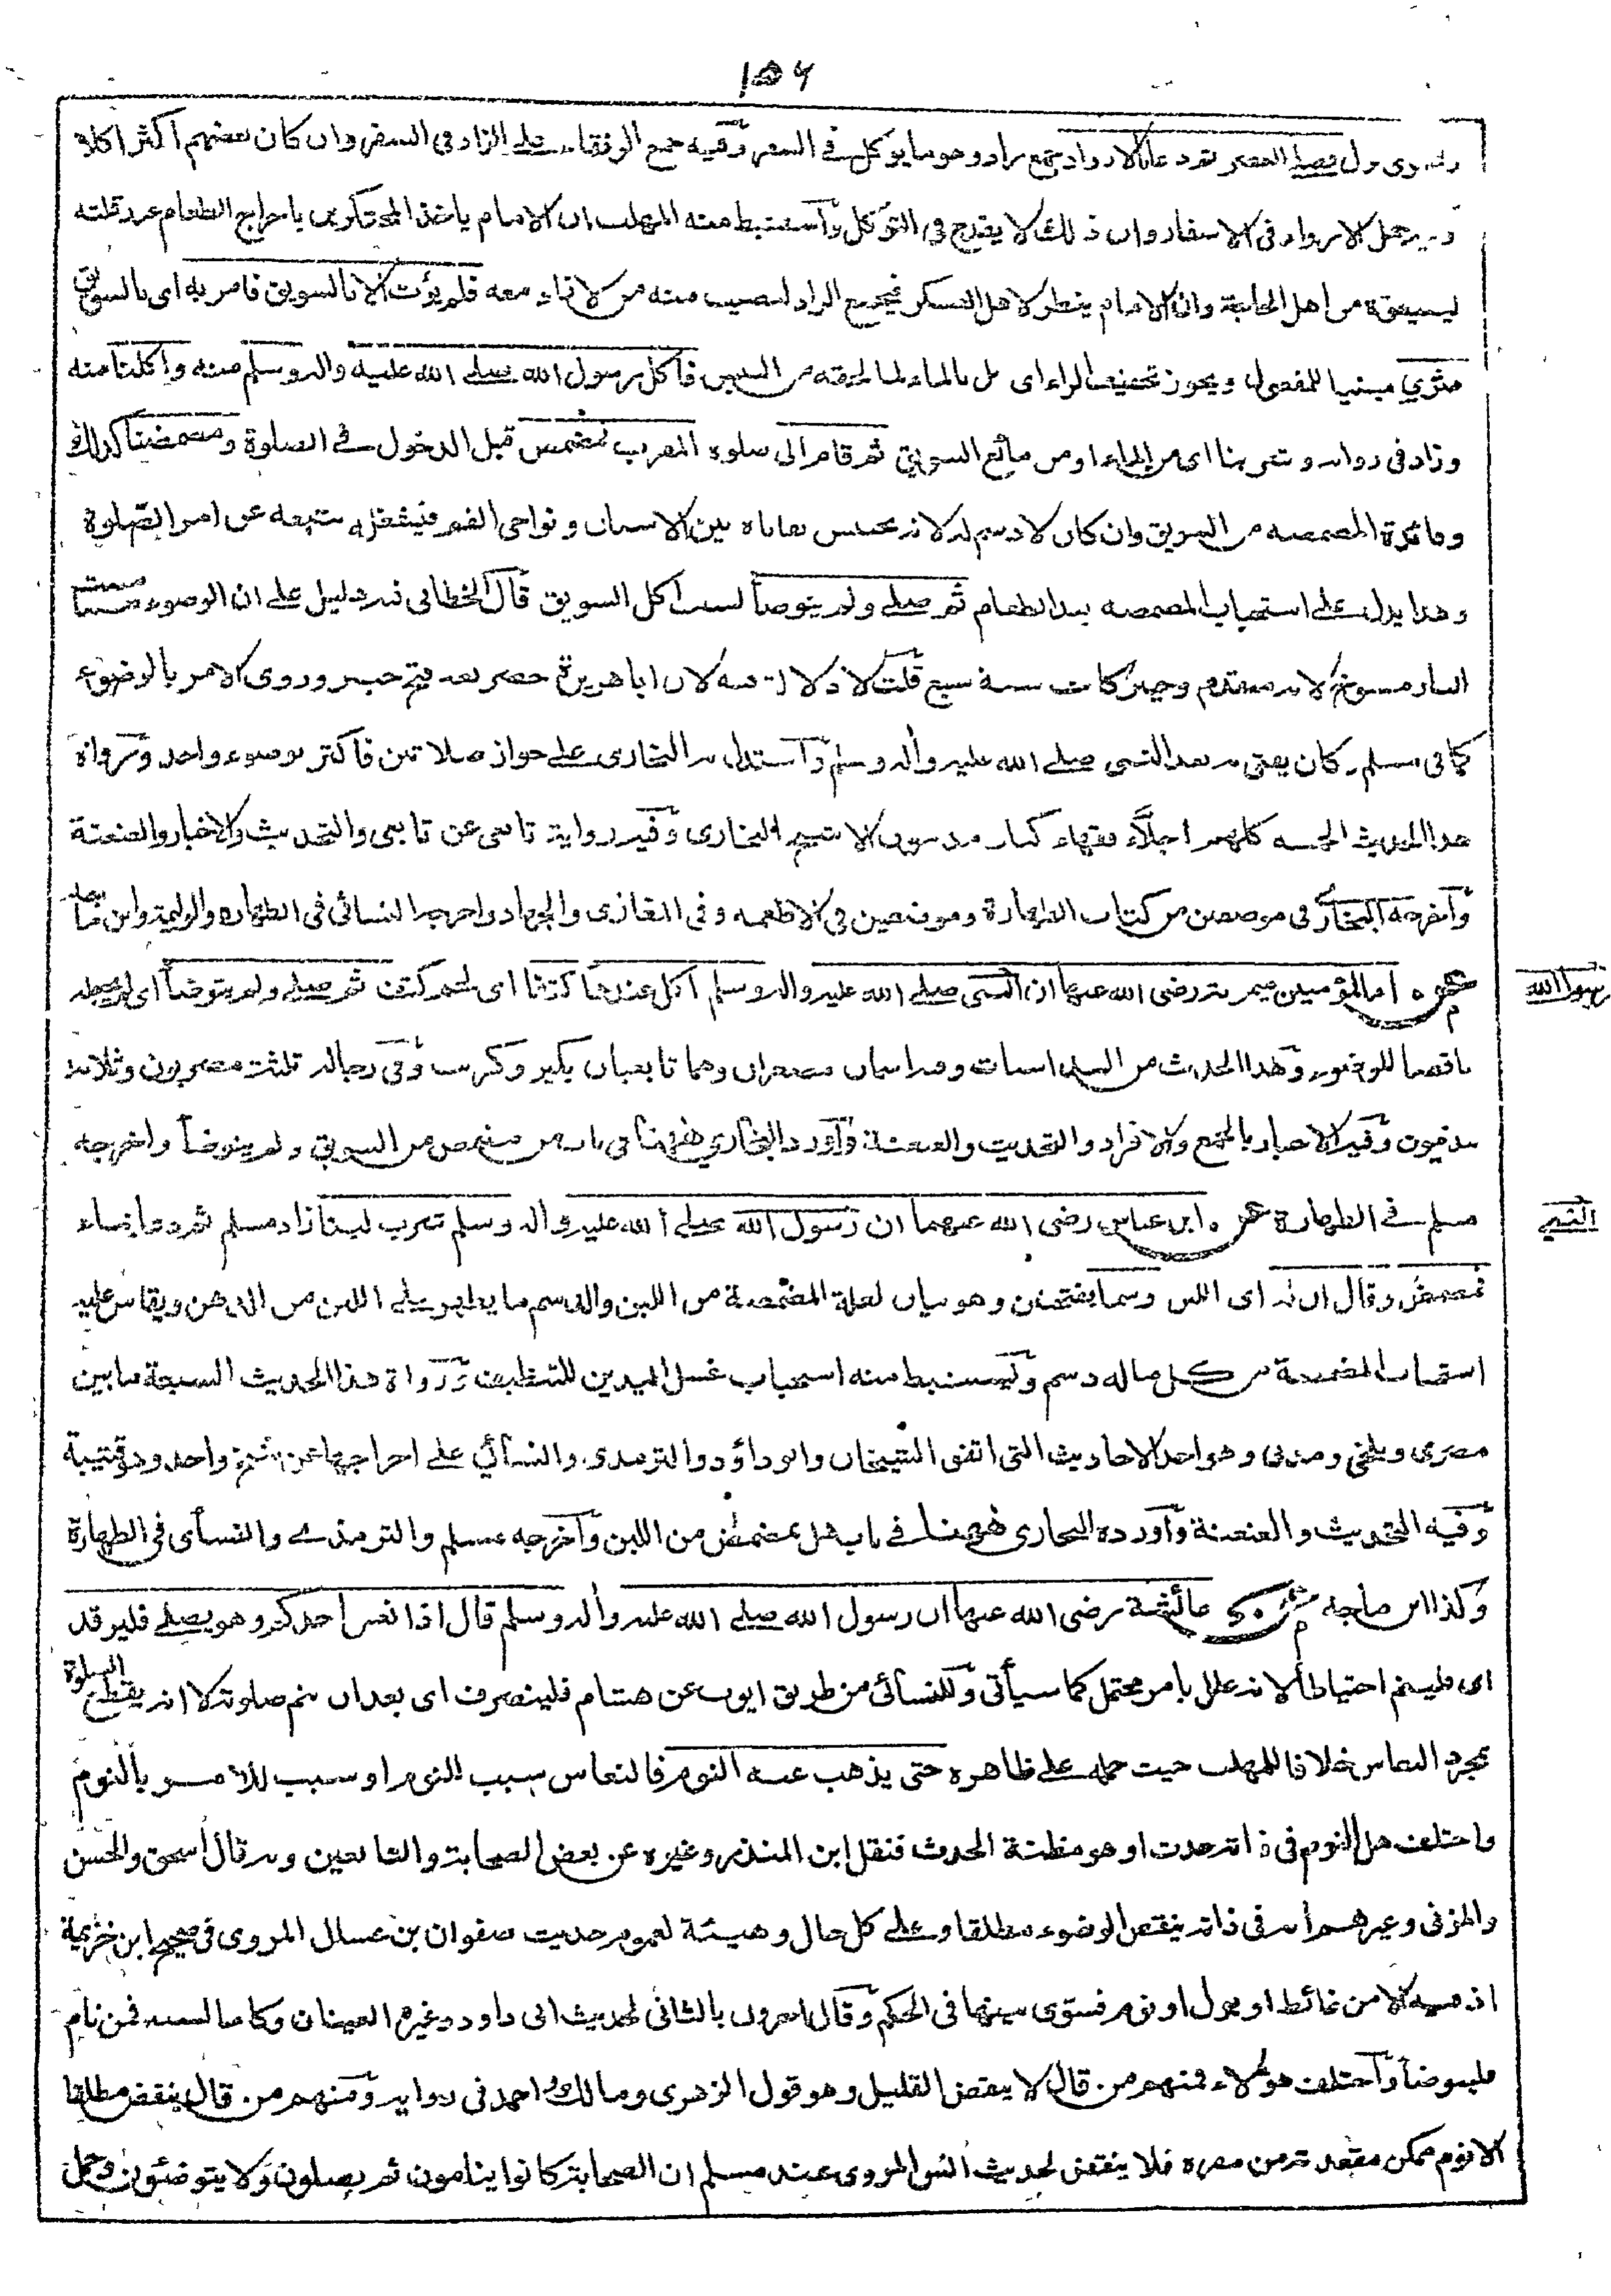 ١٥٦
فصلى العصر ثم دعا بالازواد جمع زاد وهو ما يؤكل في السفر وفيه جمع الرفقاء على الزاد في السفر وان كان بعضهم اكثر اكلا
وفيه حمل الازواد في الاسفار وان ذلك لا يقدح في التوكل واستنبط منه المهلب ان الامام ياخذ المحتكرين باخراج الطعام عند قلته
ليبيعوه من اهل الحاجة وان الامام ينظر لاهل العسكر فيجمع الزاد ليصيب منه من لا زاد معه فلم يؤت الا بالسويق فامر به اى بالسويق
فثري مبنيا للمفعول ويجوز تخفيف الراء اى بل بالماء لما لحقه من اليبس فاكل رسول الله صلے الله عليه واله وسلم منه واكلنا منه
وزاد فى رواية وشربنا اى من الماء او من مائع السويق ثم قام الى صلوة المغرب فمضمض قبل الدخول في الصلوة ومضمضنا كذلك
وفائدة المضمضة من السويق وان كان لا دسم له لانه يحتبس بقاياه بين الاسنان ونواحى الفم فيشغله تتبعه عن امر الصلوة
وهذا يدل على استحباب المضمضة بعد الطعام ثم صلے ولم يتوضأ لسبب اكل السويق قال الخطابى فيه دليل على ان الوضوء مما مست
النار منسوخ لانه متقدم وخيبر كانت سنة سبع قلت لا دلالة فيه لان ابا هريرة حضر بعد فتح خيبر وروى الامر بالوضوء
كما فى مسلم وكان يفتى به بعد النبى صلے الله عليه واله وسلم واستدل به البخارى على جواز صلاتين فاكثر بوضوء واحد ورواة
هذا الحديث الخمسة كلهم اجلاء فقهاء كبار مدنيون الا شيخ البخارى وفيه رواية تابعى عن تابعى والتحديث والاخبار والعنعنة
واخرجه البخارى فى موضعين من كتاب الطهارة وموضعين فى الاطعمة وفى المغازى والجهاد واخرجه النسائى فى الطهارة والوليمة وابن ماجة
عن ام المؤمنين ميمونة رضى الله عنها ان النبى صلے الله عليه واله وسلم اكل عندها كتفا اى لحم كتف ثم صلے ولم يتوضأ اى لم يجعله
رسول الله
ناقضا للوضوء وهذا الحديث من السداسيات وفيه اسمان مصغران وهما تابعيان بكير وكريب وفى رجاله ثلثة مصريون وثلاثة
مدنيون وفيه الاخبار بالجمع والافراد والتحديث والعنعنة واورده البخاري ههنا فى باب من مضمض من السويق ولم يتوضأ واخرجه
مسلم في الطهارة عن ابن عباس رضى الله عنهما ان رسول الله صلے الله عليه واله وسلم شرب لبنا زاد مسلم ثم دعا بماء
النبي
فمضمض وقال ان له اى اللبن دسما بفتحتين وهو بيان لعلة المضمضة من اللبن والدسم ما يظهر على اللبن من الدهن ويقاس عليه
استحباب المضمضة من كل ماله دسم ويستنبط منه استحباب غسل اليدين للتنظيف ورواة هذا الحديث السبعة ما بين
مصرى وبلخى ومدنى وهو احد الاحاديث التى اتفق الشيخان وابو داؤد والترمذى والنسائي على اخراجها عن شيخ واحد وهو قتيبة
وفيه التحديث والعنعنة واورده البخارى ههنا في باب هل يمضمض من اللبن واخرجه مسلم والترمذے والنسأى فى الطهارة
وكذا ابن ماجه عن عائشة رضى الله عنها ان رسول الله صلے الله عليه واله وسلم قال اذا نعس احدكم وهو يصلے فليرقد
اى فلينم احتياطا لانه علل بامر محتمل كما سيأتى وللنسائى من طريق ايوب عن هشام فلينصرف اى بعد ان يتم صلوته لا انه يقطع الصلوة
بمجرد النعاس خلافا للمهلب حيث حمله على ظاهره حتى يذهب عنه النوم فالنعاس سبب للنوم او سبب للامر بالنوم
واختلف هل النوم فى ذاته حدث او هو مظنة الحدث فنقل ابن المنذر وغيره عن بعض الصحابة والتابعين وبه قال اسحق والحسن
والمزنى وغيرهم انه فى ذاته ينقض الوضوء مطلقا وعلى كل حال وهيئة لعموم حديث صفوان بن عسال المروى فى صحيح ابن خزيمة
اذ فيه الا من غائط او بول او نوم فسوّى بينهما فى الحكم وقال اخرون بالثانى لحديث ابى داود وغيره العينان وكاء السه فمن نام
فليتوضأ واختلف هؤلاء فمنهم من قال لا ينقض القليل وهو قول الزهرى ومالك واحمد فى رواية ومنهم من قال ينقض مطلقا
الا نوم ممكن مقعدته من مقره فلا ينقض لحديث انس المروى عند مسلم ان الصحابة كانوا ينامون ثم يصلون ولا يتوضئون وحمل